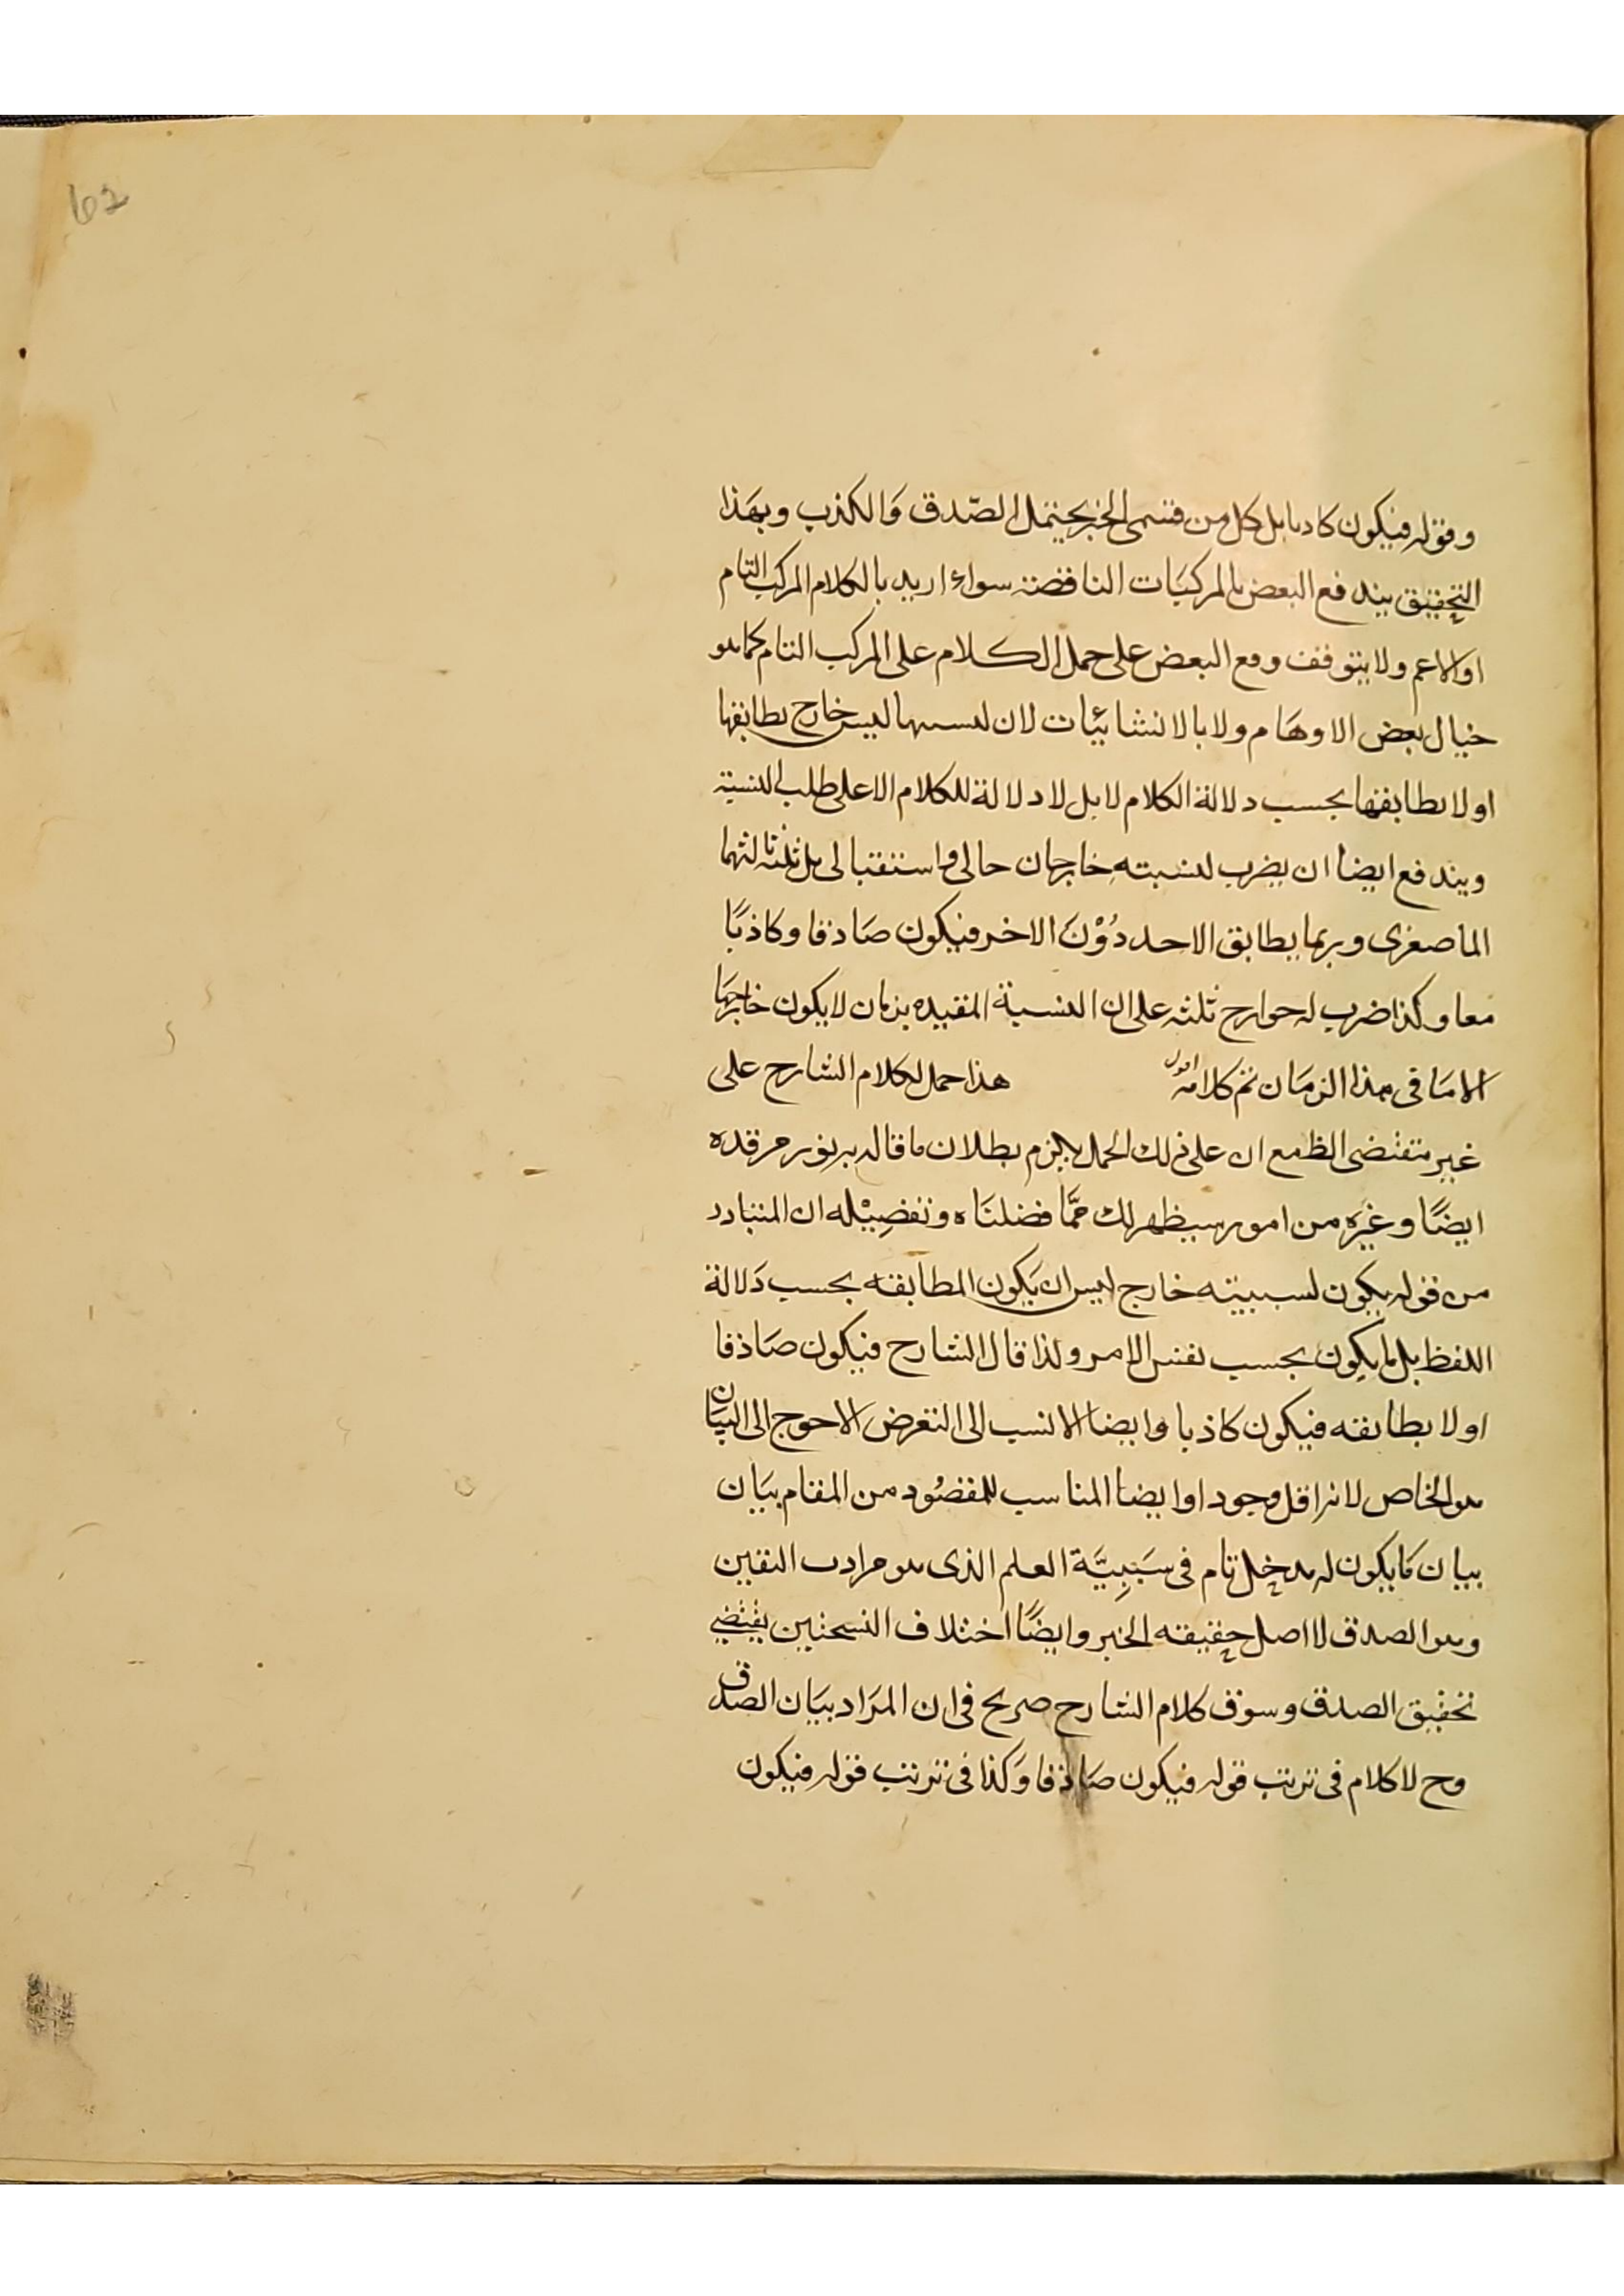 62
وقوله فيكون كاذبا بل كل من قسمى الخبر يحتمل الصّدق وَالكذب وبهَذا
التحقيق يندفع البعض بالمركبَات الناقصة سواء اريد بالكلام المركب التام
او الاعم ولا يتوقف دفع البعض على حمل الكلام على المركب التام كما هو
خيال بعض الاوهَام ولا بالانشائيات لان لنسبها ليس خارج يطابقها
او لا يطابقها بحسب دلالة الكلام لا بل لا دلالة للكلام الا على طلب النسبة
ويندفع ايضا ان يضرب لنسبته خارجان حالى واستقبالى بل ثلثة ثالثهما
الماضوى وربما يطابق الاحد دُوْنَ الاخر فيكون صَادقا وكاذبًا
معا وكذا ضرب له خوارج ثلثه على ان النسبة المقيده بزمان لا يكون خارجهَا
الا مَا فى هذا الزمَان تم كلامه اقول هذا حمل لكلام الشارح على
غير مقتضى الظ مع ان على ذلك الحمل يلزم بطلان ما قاله بر نور مرقده
ايضًا وغيره من امور سيظهر لك ممَّا فصلنَاه وتفصِيْله ان المتبادر
من قوله يكون لنسبيته خارج ليس ان يَكون المطابقه بحسب دَلالة
اللفظ بل ما يكون بحسب نفس الامر ولذا قال الشارح فيكون صَادقا
او لا يطابقه فيكون كاذبا وايضا الانسب الى التعرض الاحوج الى البيَان
هو الخاص لانه اقل وجودا وايضا المناسب للمقصُود من المقام بيَان
بيان مَا يكون له مدخل تام فى سَبَبِيَّة العلم الذى هو مرادف اليقين
وهو الصدق لا اصل حقيقه الخبر وايضًا اختلاف النسختين يقتضي
تحقيق الصدق وسوق كلام الشارح صريح فى ان المرَاد بيَان الصدق
وح لا كلام فى ترتب قوله فيكون صَادقا وَكذا فى ترتب قوله فيكون